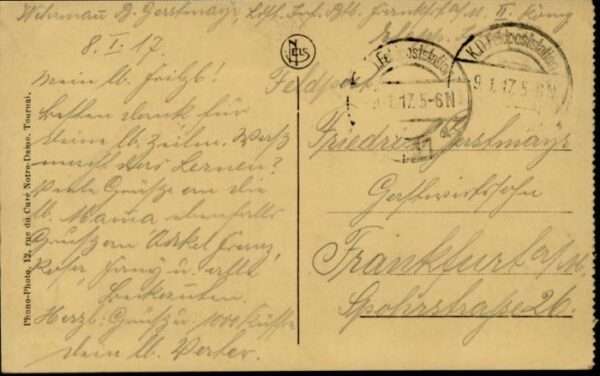 Wehrmann G. Gerstmayr, Ldst. Inf. Btl. Frankf. a/M. II. Komp.
8.I.17.
NELS
Feldpost.
K.D. Feldpoststation
9.1.17.5-6N
K.D. Feldpoststation
9.1.17.5-6N
Mein lb. Fritzl!
Besten Dank für
Deine lb. Zeilen. Was
macht das Lernen?
Viele Grüße an die
lb. Mama ebenfalls
Grüße an Onkel Franz,
Rosa, Fanny u. alle
Bekannten.
Herzl. Grüße u. 1000 Küsse
Dein lb. Vater.
Friedrich Gerstmayr
Gastwirtssohn
Frankfurt a/M.
Spohrstraße 26.
Phono-Photo, 12, rue du Curé Notre-Dame, Tournai.